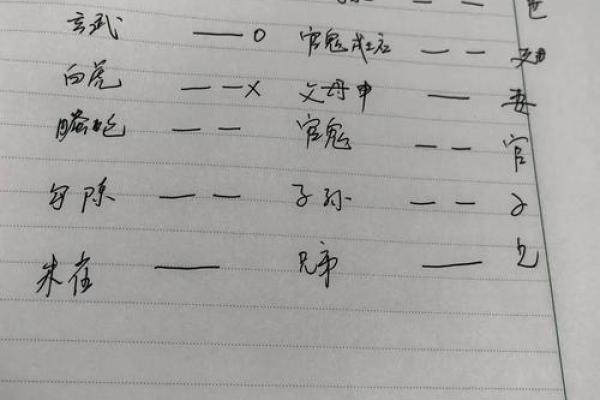 玄武 — O 官鬼戌土 — —
白虎 — — X 父母申 — 父
螣蛇 — — 官鬼 — — 官
勾陈 — — 子孙 — — 子
朱雀 — 兄弟 — 兄